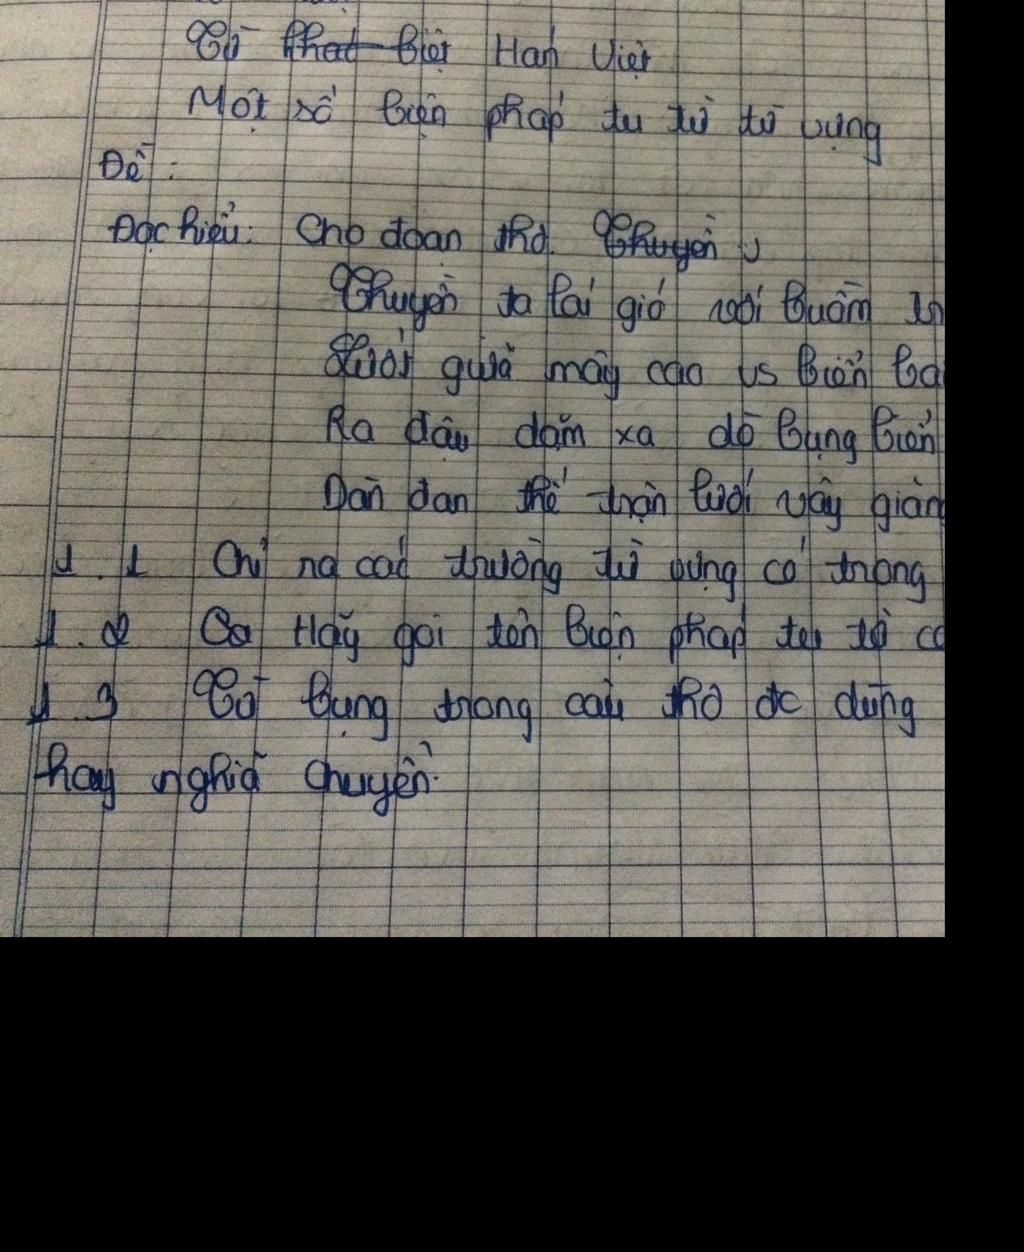 Từ phat biệt Hán Việt
Một số biện pháp tu từ từ vựng
Đề:
Đọc hiểu: Cho đoạn thơ. Thuyền
Thuyền ta lái gió với buồm
Lướt giữa mây cao vs biển
Ra đậu dặm xa dò bụng biển
Dàn đan thế trận lưới vây giăng
1.1 Chỉ ra các trường từ vựng có trong
1.2 Ca Hãy gọi tên biện pháp tu từ
1.3 Từ bụng trong câu thơ đc dùng
hay nghĩa chuyển.